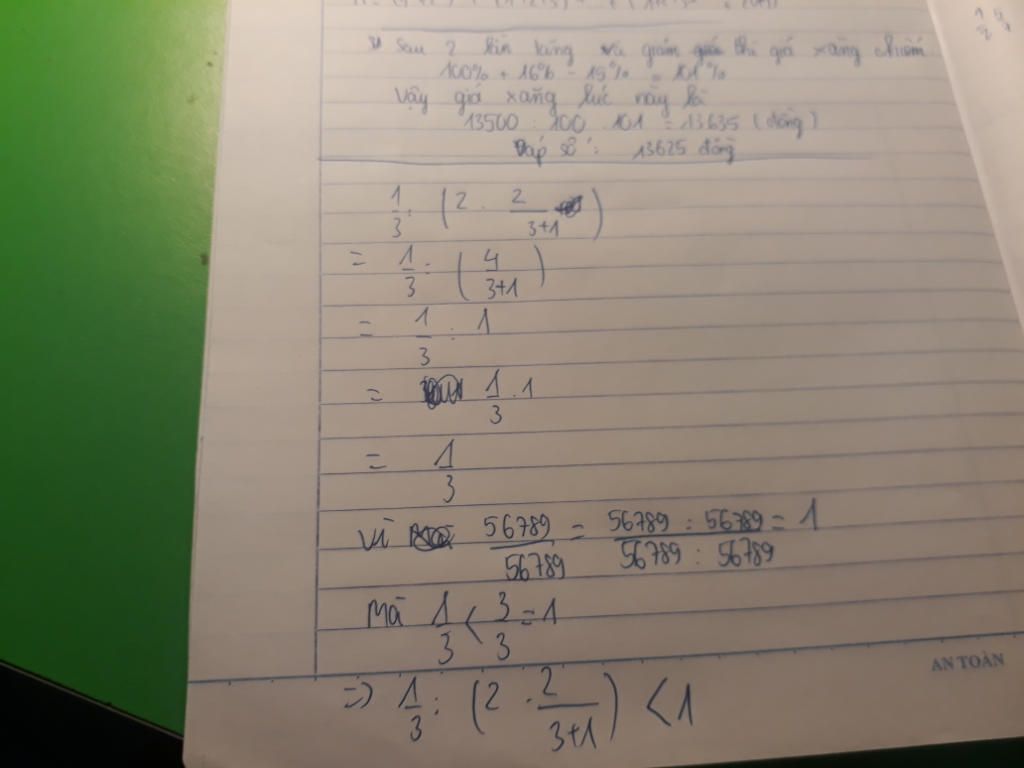 Sau 2 lần tăng và giảm giá thì giá xăng chiếm
100% + 16% - 15% = 101%
Vậy giá xăng lúc này là
13500 : 100 . 101 = 13635 (đồng)
Đáp số : 13625 đồng
1/3 : (2 . 2/3+1)
= 1/3 : (4/3+1)
= 1/3 : 1
= 1/3 . 1
= 1/3
Vì 56789/56789 = 56789 : 56789/56789 : 56789 = 1
Mà 1/3 < 3/3 = 1
AN TOÀN
=> 1/3 : (2 . 2/3+1) < 1